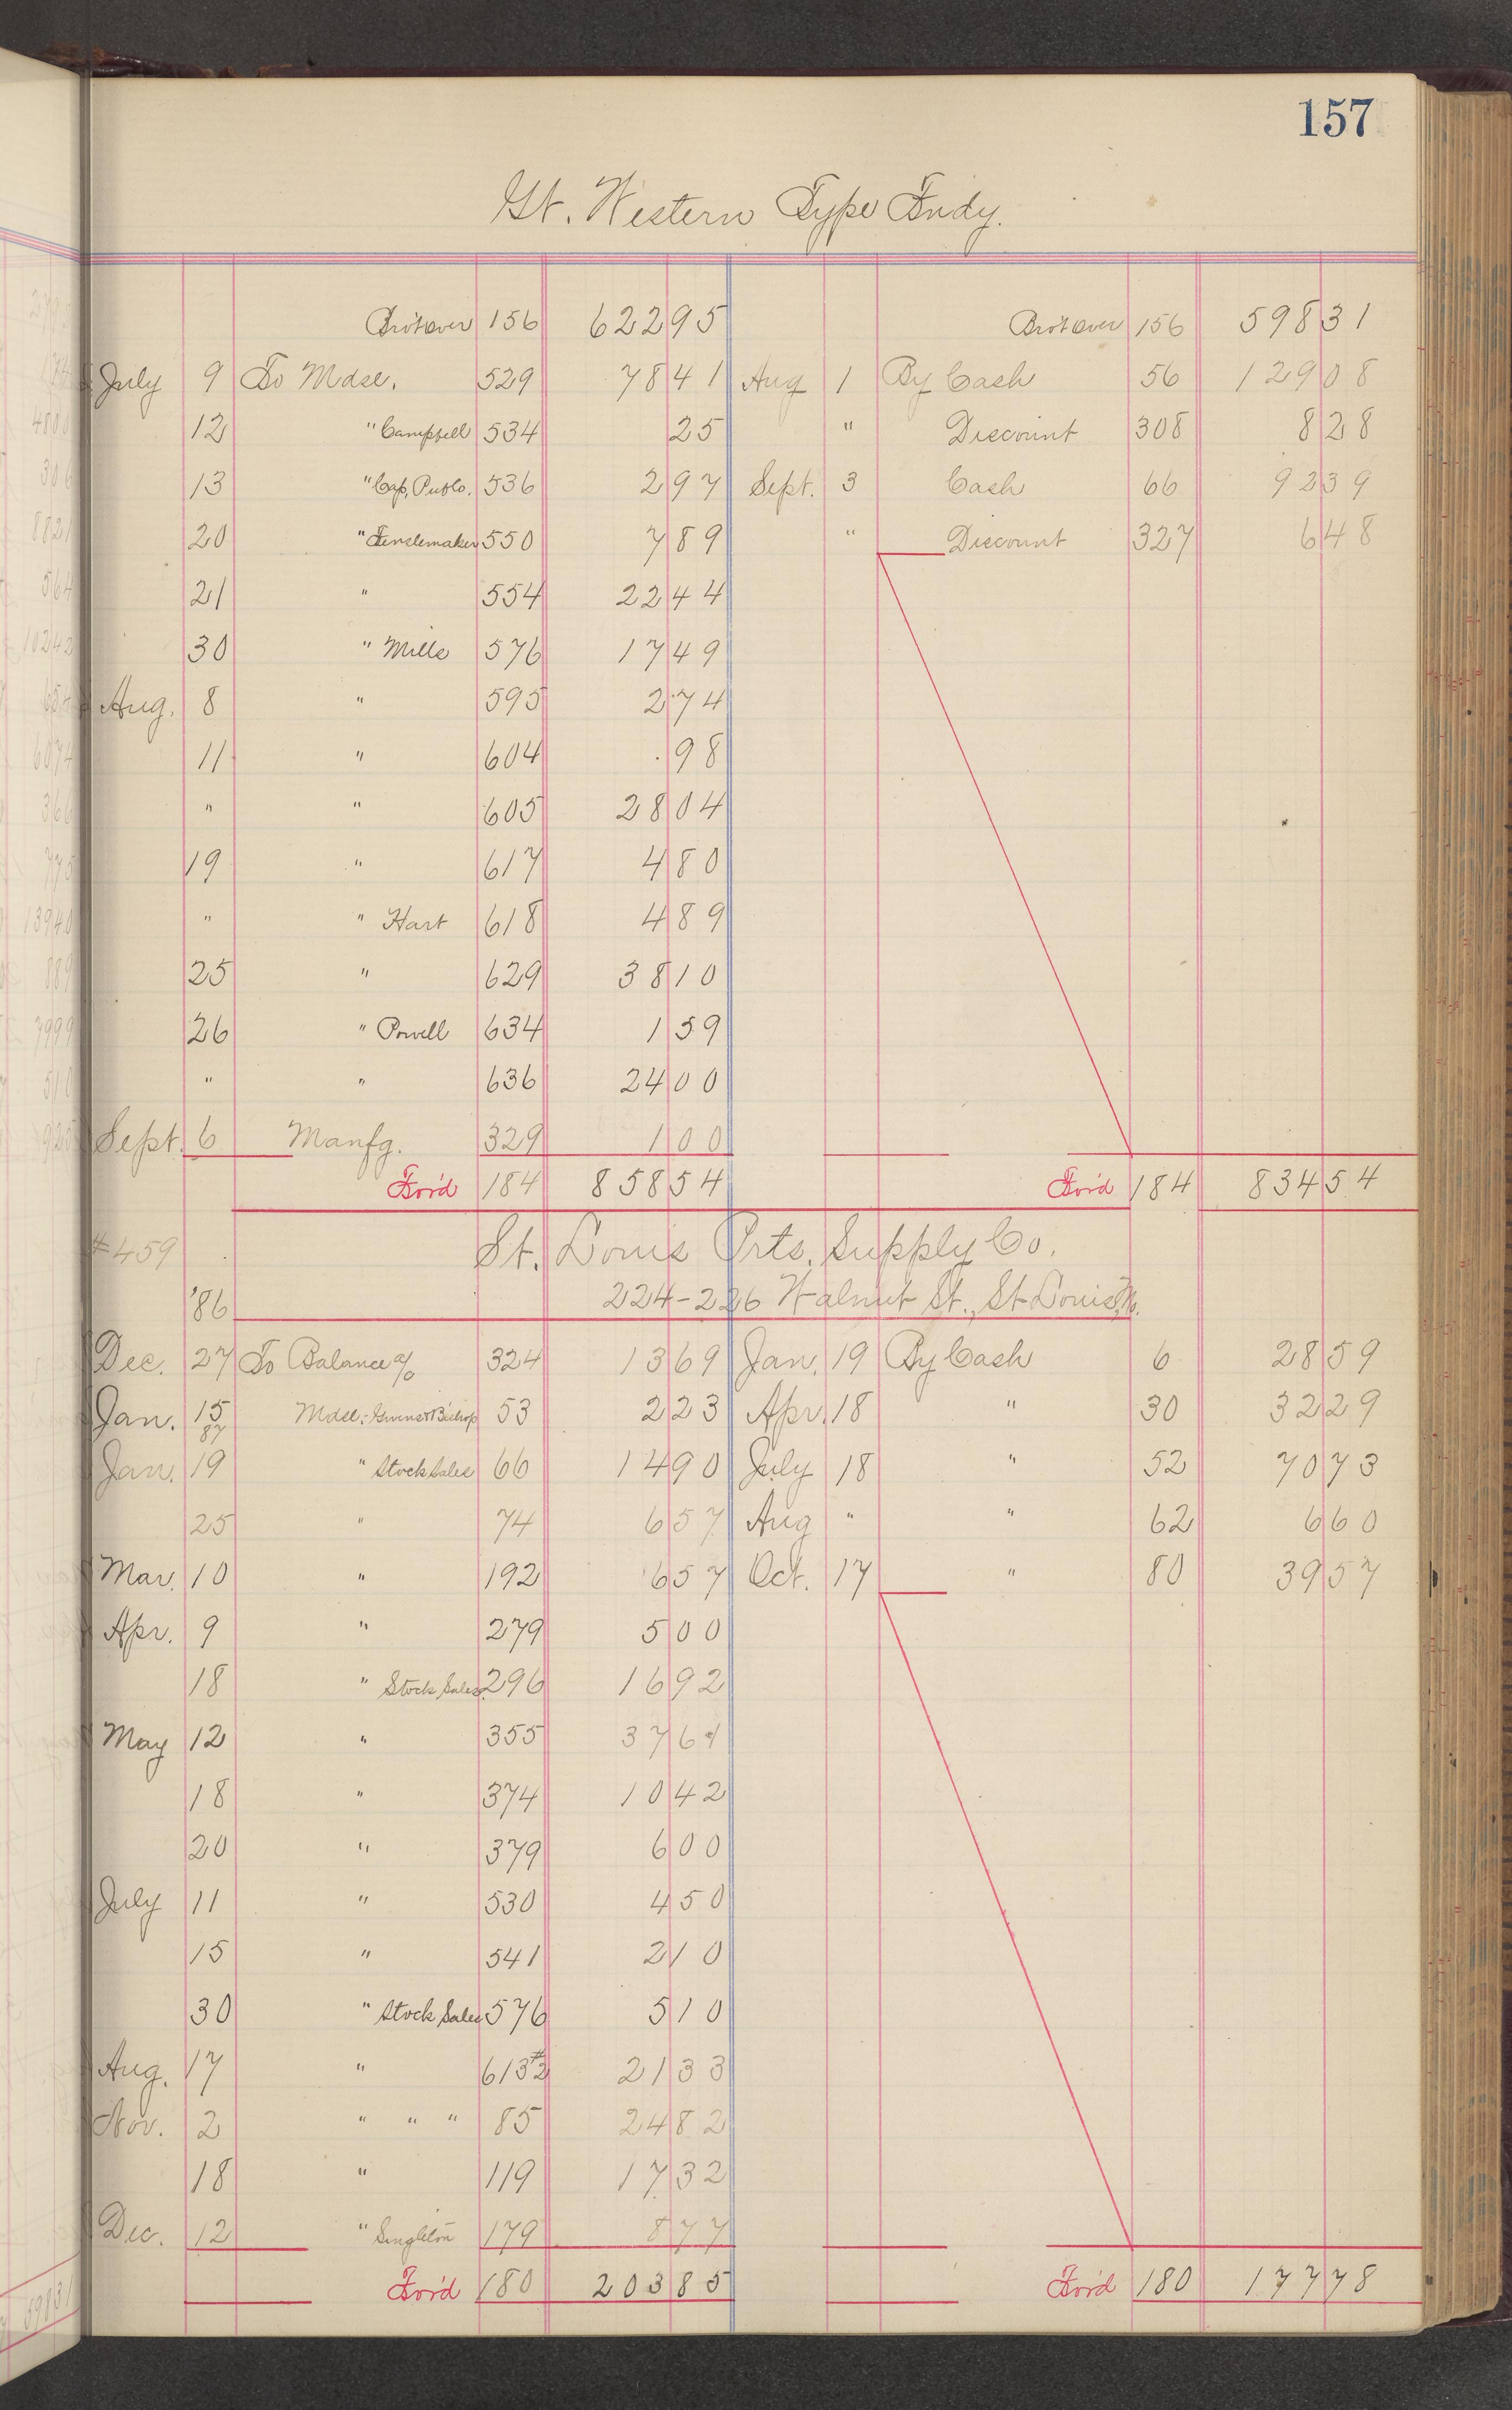 157
Gt. Western Type Fndy.
Bro't over 156 622 95 Bro't over 156 598 31
July 9 To Mdse. 529 78 41 Aug 1 By Cash 56 129 08
12 " Campbell 534 25 " Discount 308 8 28
13 " Cap. Pub Co. 536 2 97 Sept. 3 Cash 66 92 39
20 " Fenslemaker 550 7 89 " Discount 327 6 48
21 " 554 22 44
30 " Mills 576 17 49
Aug. 8 " 595 2 74
11 " 604 .98
" " 605 28 04
19 " 617 4 80
" " Hart 618 4 89
25 " 629 38 10
26 " Powell 634 1 59
" " 636 24 00
Sept. 6 Manfg. 329 1 00
For'd 184 858 54 For'd 184 834 54
#459 St. Louis Prts. Supply Co.
'86 224-226 Walnut St., St Louis, Mo.
Dec. 27 To Balance a/c 324 13 69 Jan. 19 By Cash 6 28 59
Jan. 15 Mdse.- Givens & Bishop 53 2 23 Apr. 18 " 30 32 29
87
Jan. 19 " Stock Sales 66 14 90 July 18 " 52 70 73
25 " 74 6 57 Aug " " 62 6 60
Mar. 10 " 192 6 57 Oct. 17 " 80 39 57
Apr. 9 " 279 5 00
18 " Stock Sales 296 16 92
May 12 " 355 37 61
18 " 374 10 42
20 " 379 6 00
July 11 " 530 4 50
15 " 541 2 10
30 " Stock Sales 576 5 10
Aug. 17 " 613 #2 21 33
Nov. 2 " " " 85 24 82
18 " 119 17 32
Dec. 12 " Singleton 179 8 77
For'd 180 203 85 For'd 180 177 78